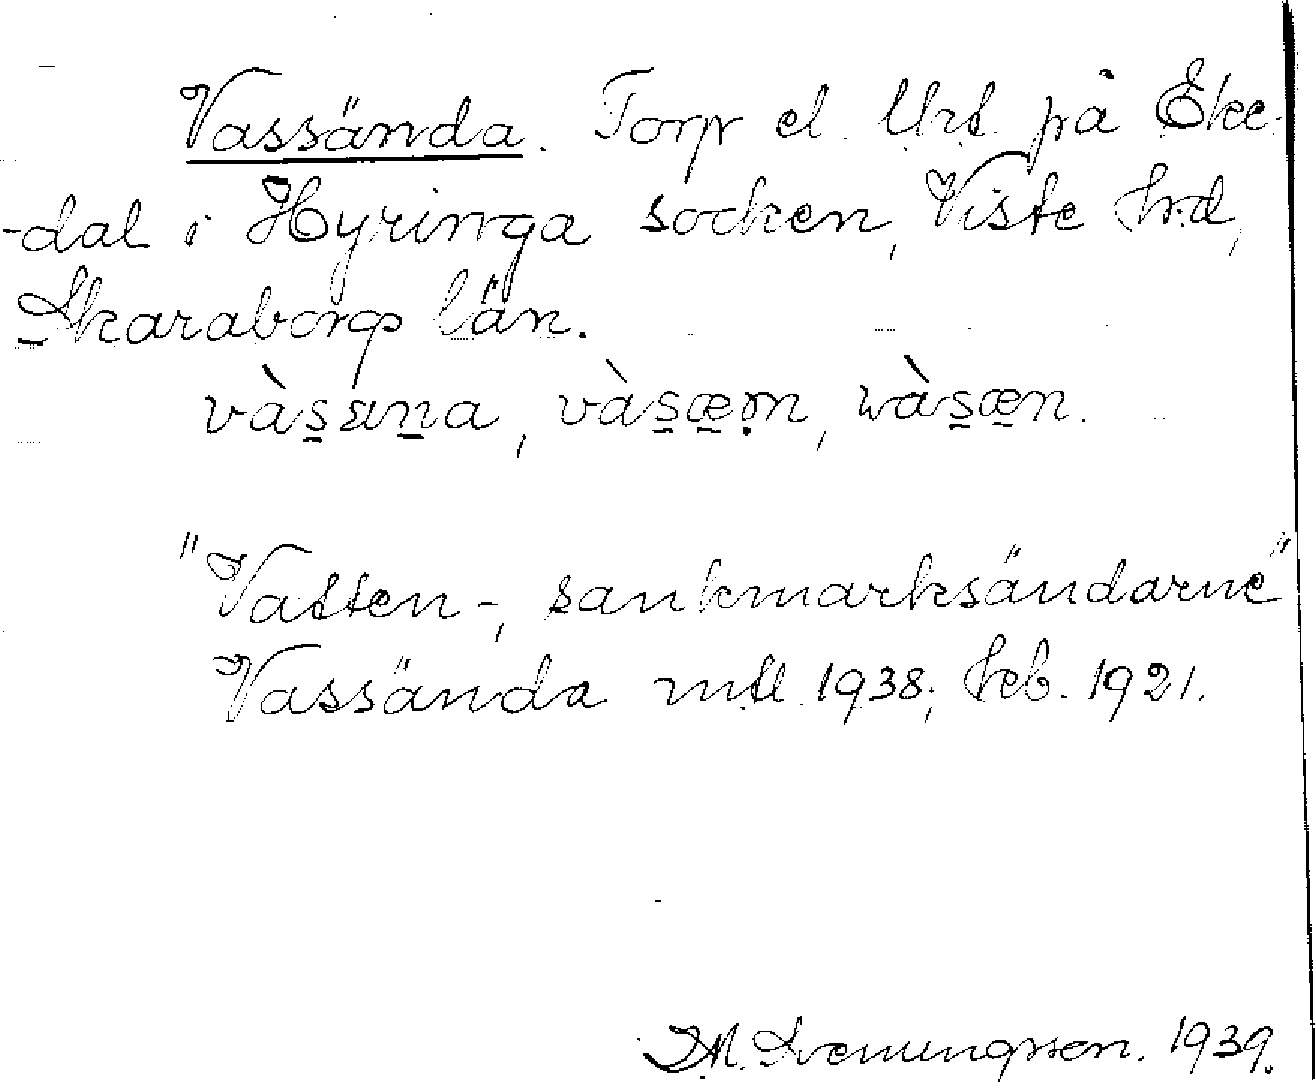 Vassända. Torp el. Uts. på Eke-
-dal i Hyringa socken, Viste hrd,
Skaraborgs län.
vàsäna, vàsæn, wàsæn.
"Vatten-, sankmarksändarne"
Vassända mtl 1938; feb. 1921.
D.M. Svenungsson. 1939.